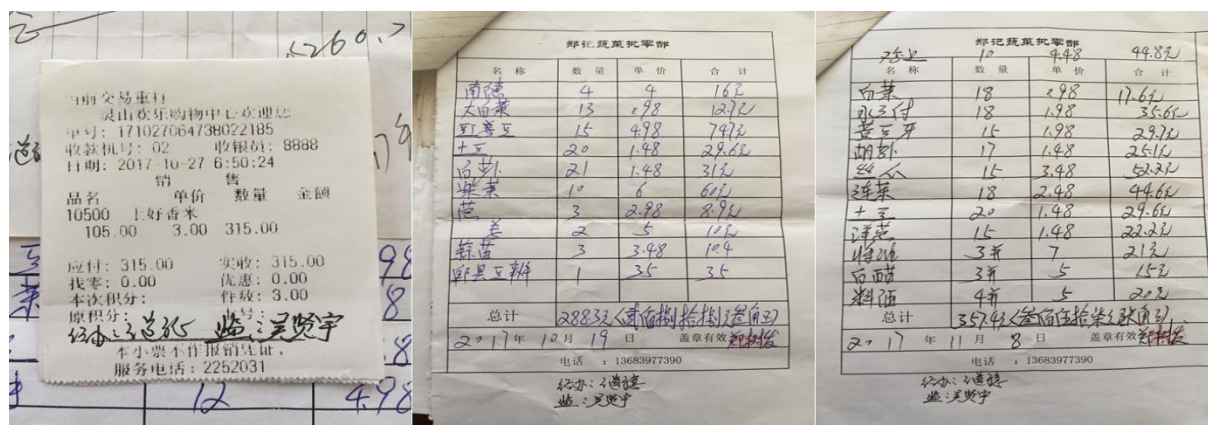 5260.7
当前交易重打
灵山欢乐购物中心欢迎您
单号: 171027064738022185
收款机号: 02 收银员: 8888
日期: 2017-10-27 6:50:24
销 售
品名 单价 数量 金额
10500 上好香米
105.00 3.00 315.00
应付: 315.00 实收: 315.00
找零: 0.00 优惠: 0.00
本次积分: 件数: 3.00
原积分:
经办: 监:吴贤宇
本小票不作报销凭证,
服务电话: 2252031
98
8
12 4.98
郑记蔬菜批零部
名 称 数 量 单 价 合 计
4 4 16元
大白菜 13 .98 12.7元
15 4.98 74.7元
土豆 20 1.48 29.6元
白萝卜 21 1.48 31元
10 6 60元
3 2.98 8.9元
姜 2 5 10元
蒜苗 3 3.48 10.4
郫县豆瓣 1 35 35
总计 288.3元(贰佰捌拾捌元叁角正)
2017年 10月 19日 盖章有效
电话 : 13683977390
经办:
监:吴贤宇
郑记蔬菜批零部
10 4.48 44.8元
名 称 数 量 单 价 合 计
白菜 18 .98 17.6元
18 1.98 35.6元
黄豆牙 15 1.98 29.7元
胡萝卜 17 1.48 25.1元
丝瓜 15 3.48 52.2元
莲菜 18 2.48 44.6元
土豆 20 1.48 29.6元
洋葱 15 1.48 22.2元
3并 7 21元
白醋 3并 5 15元
料酒 4并 5 20元
总计 357.4元(叁佰伍拾柒元肆角正)
2017 年 11 月 8 日 盖章有效
电话 : 13683977390
经办:
监:吴贤宇